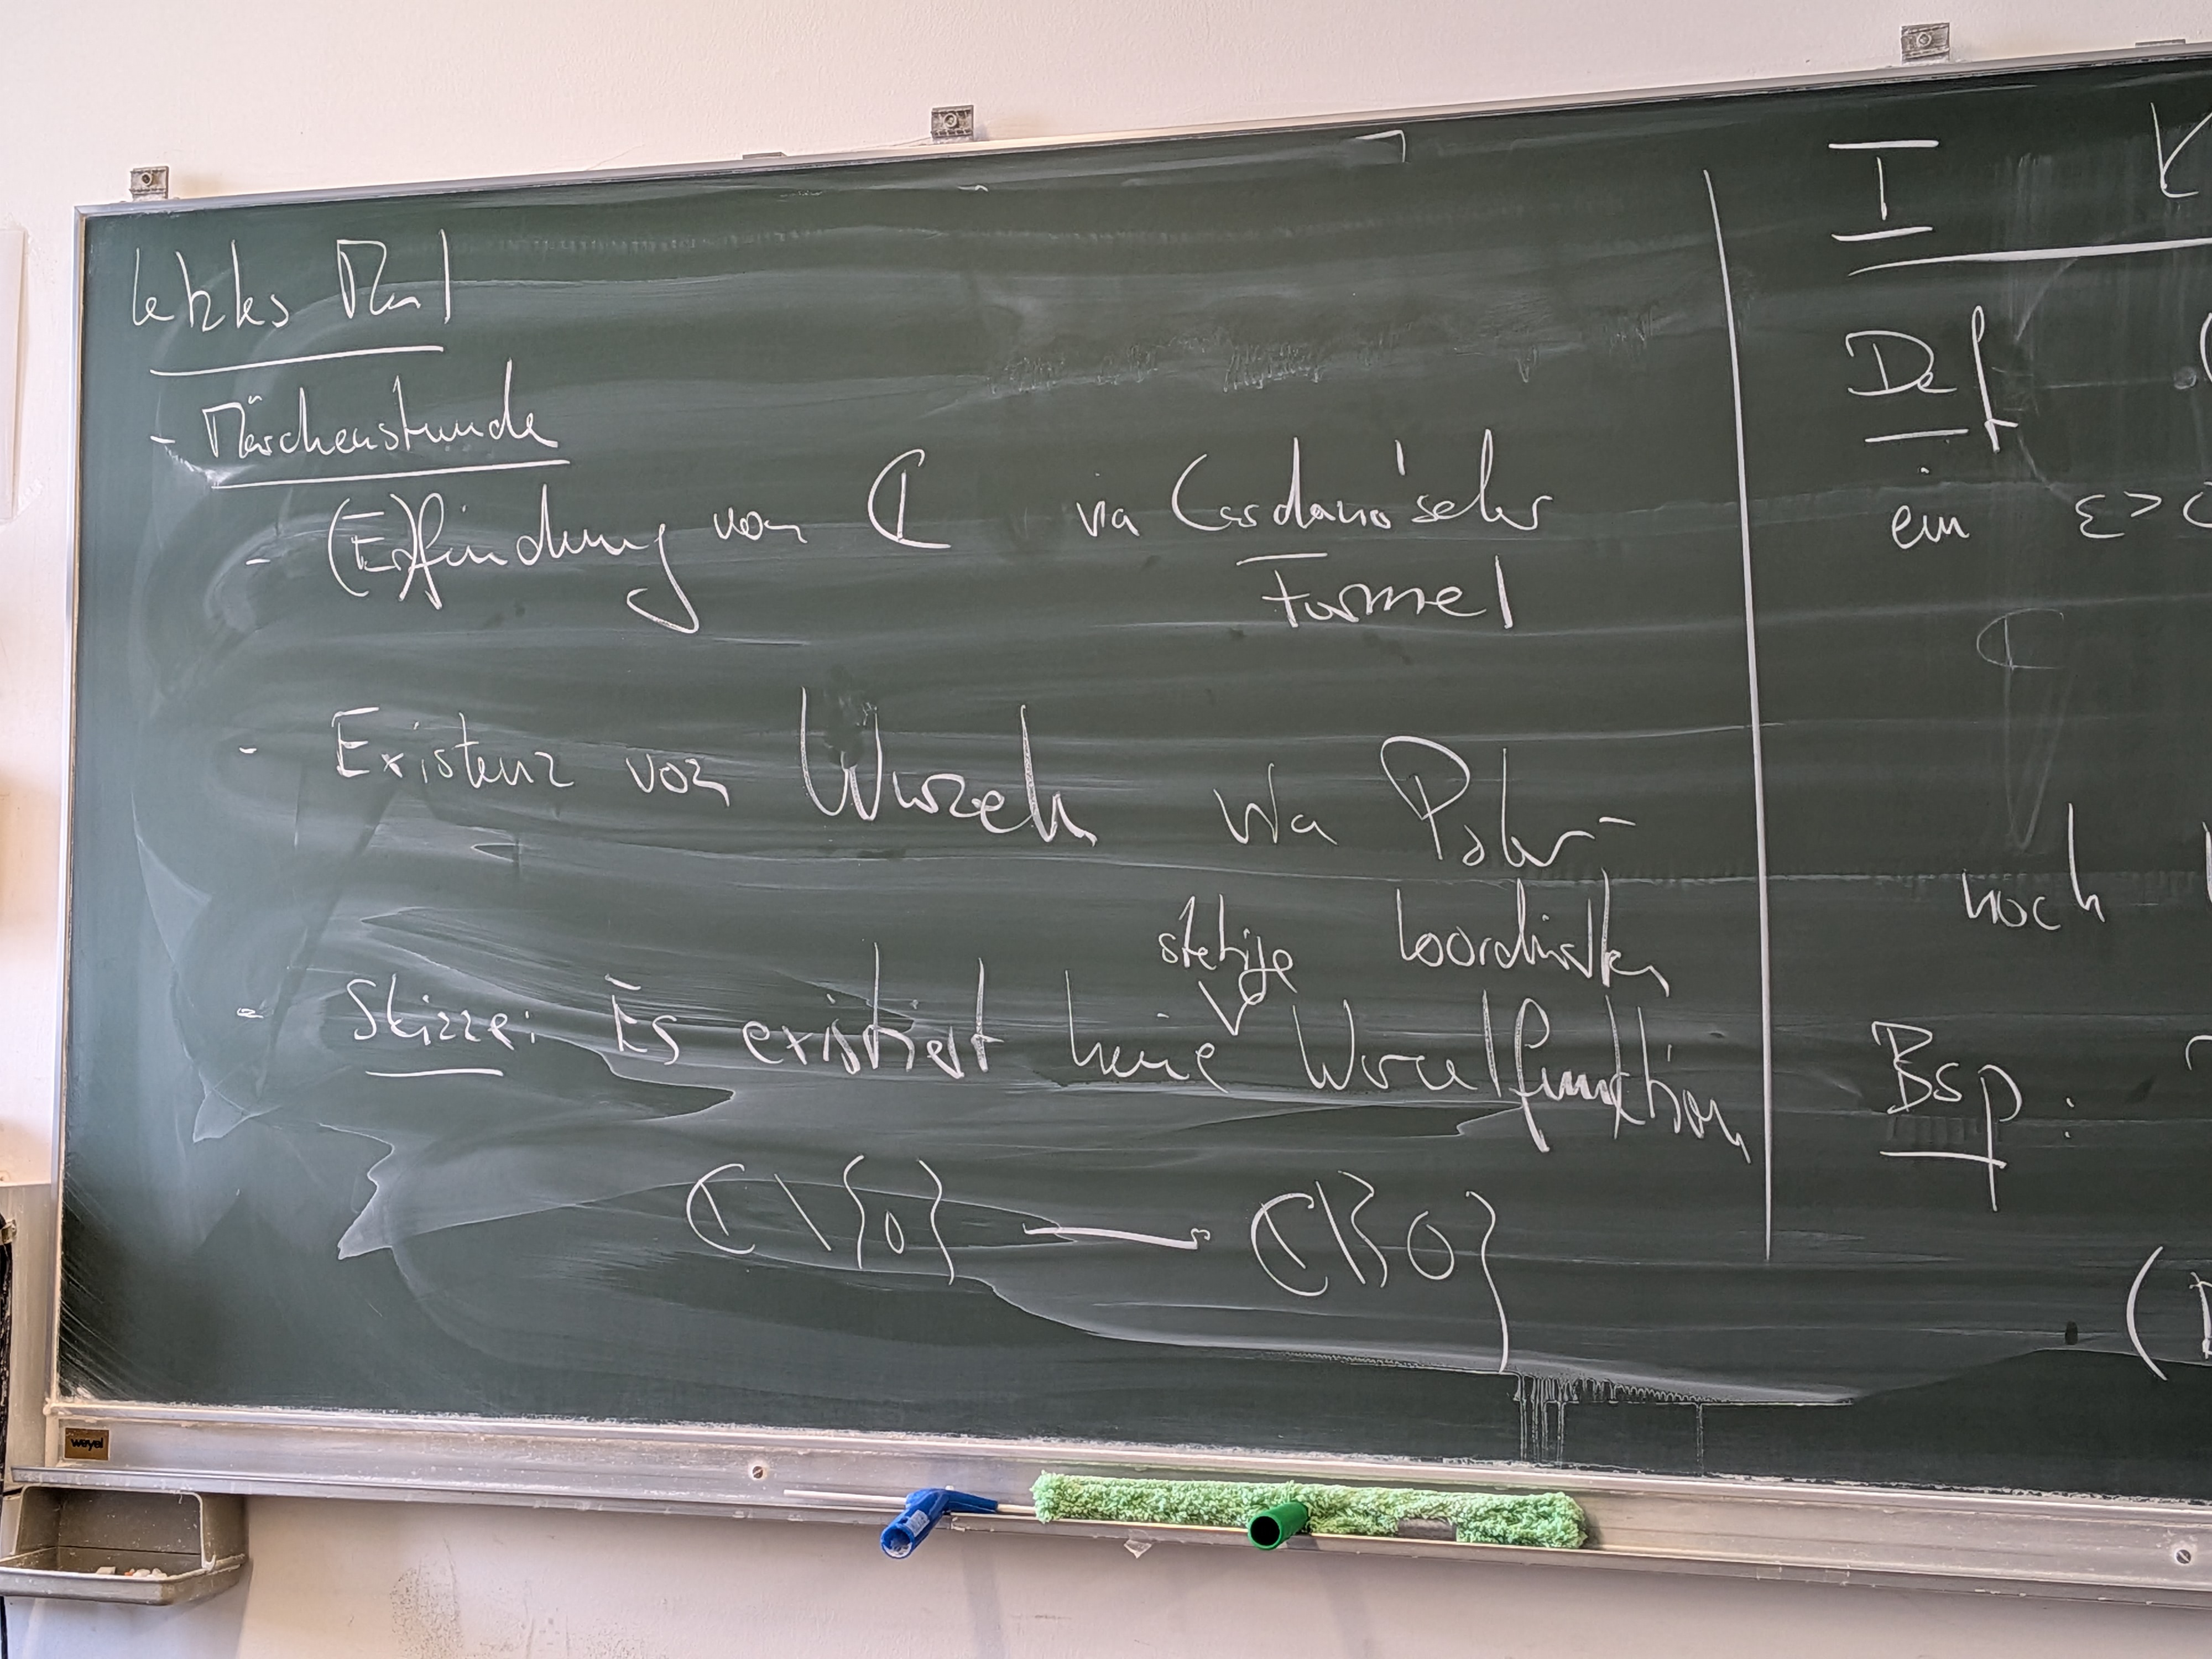 letztes Mal
- Märchenstunde
- (Er)findung von ℂ via Cardano'scher
Formel
- Existenz von Wurzeln via Polar-
koordinaten
stetige
- Skizze: Es existiert keine Wurzelfunktion
ℂ\{0} → ℂ\{0}
I K
Def
ein ε>
ℂ
noch
Bsp:
(
weyel